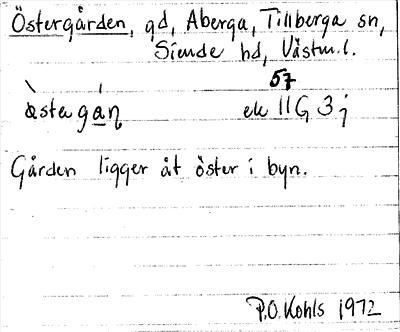 Östergården, gd, Åberga, Tillberga sn,
Siende hd, Västm.l.
57
ek 11G 3j
Gården ligger åt öster i byn.
P.O. Kohls 1972